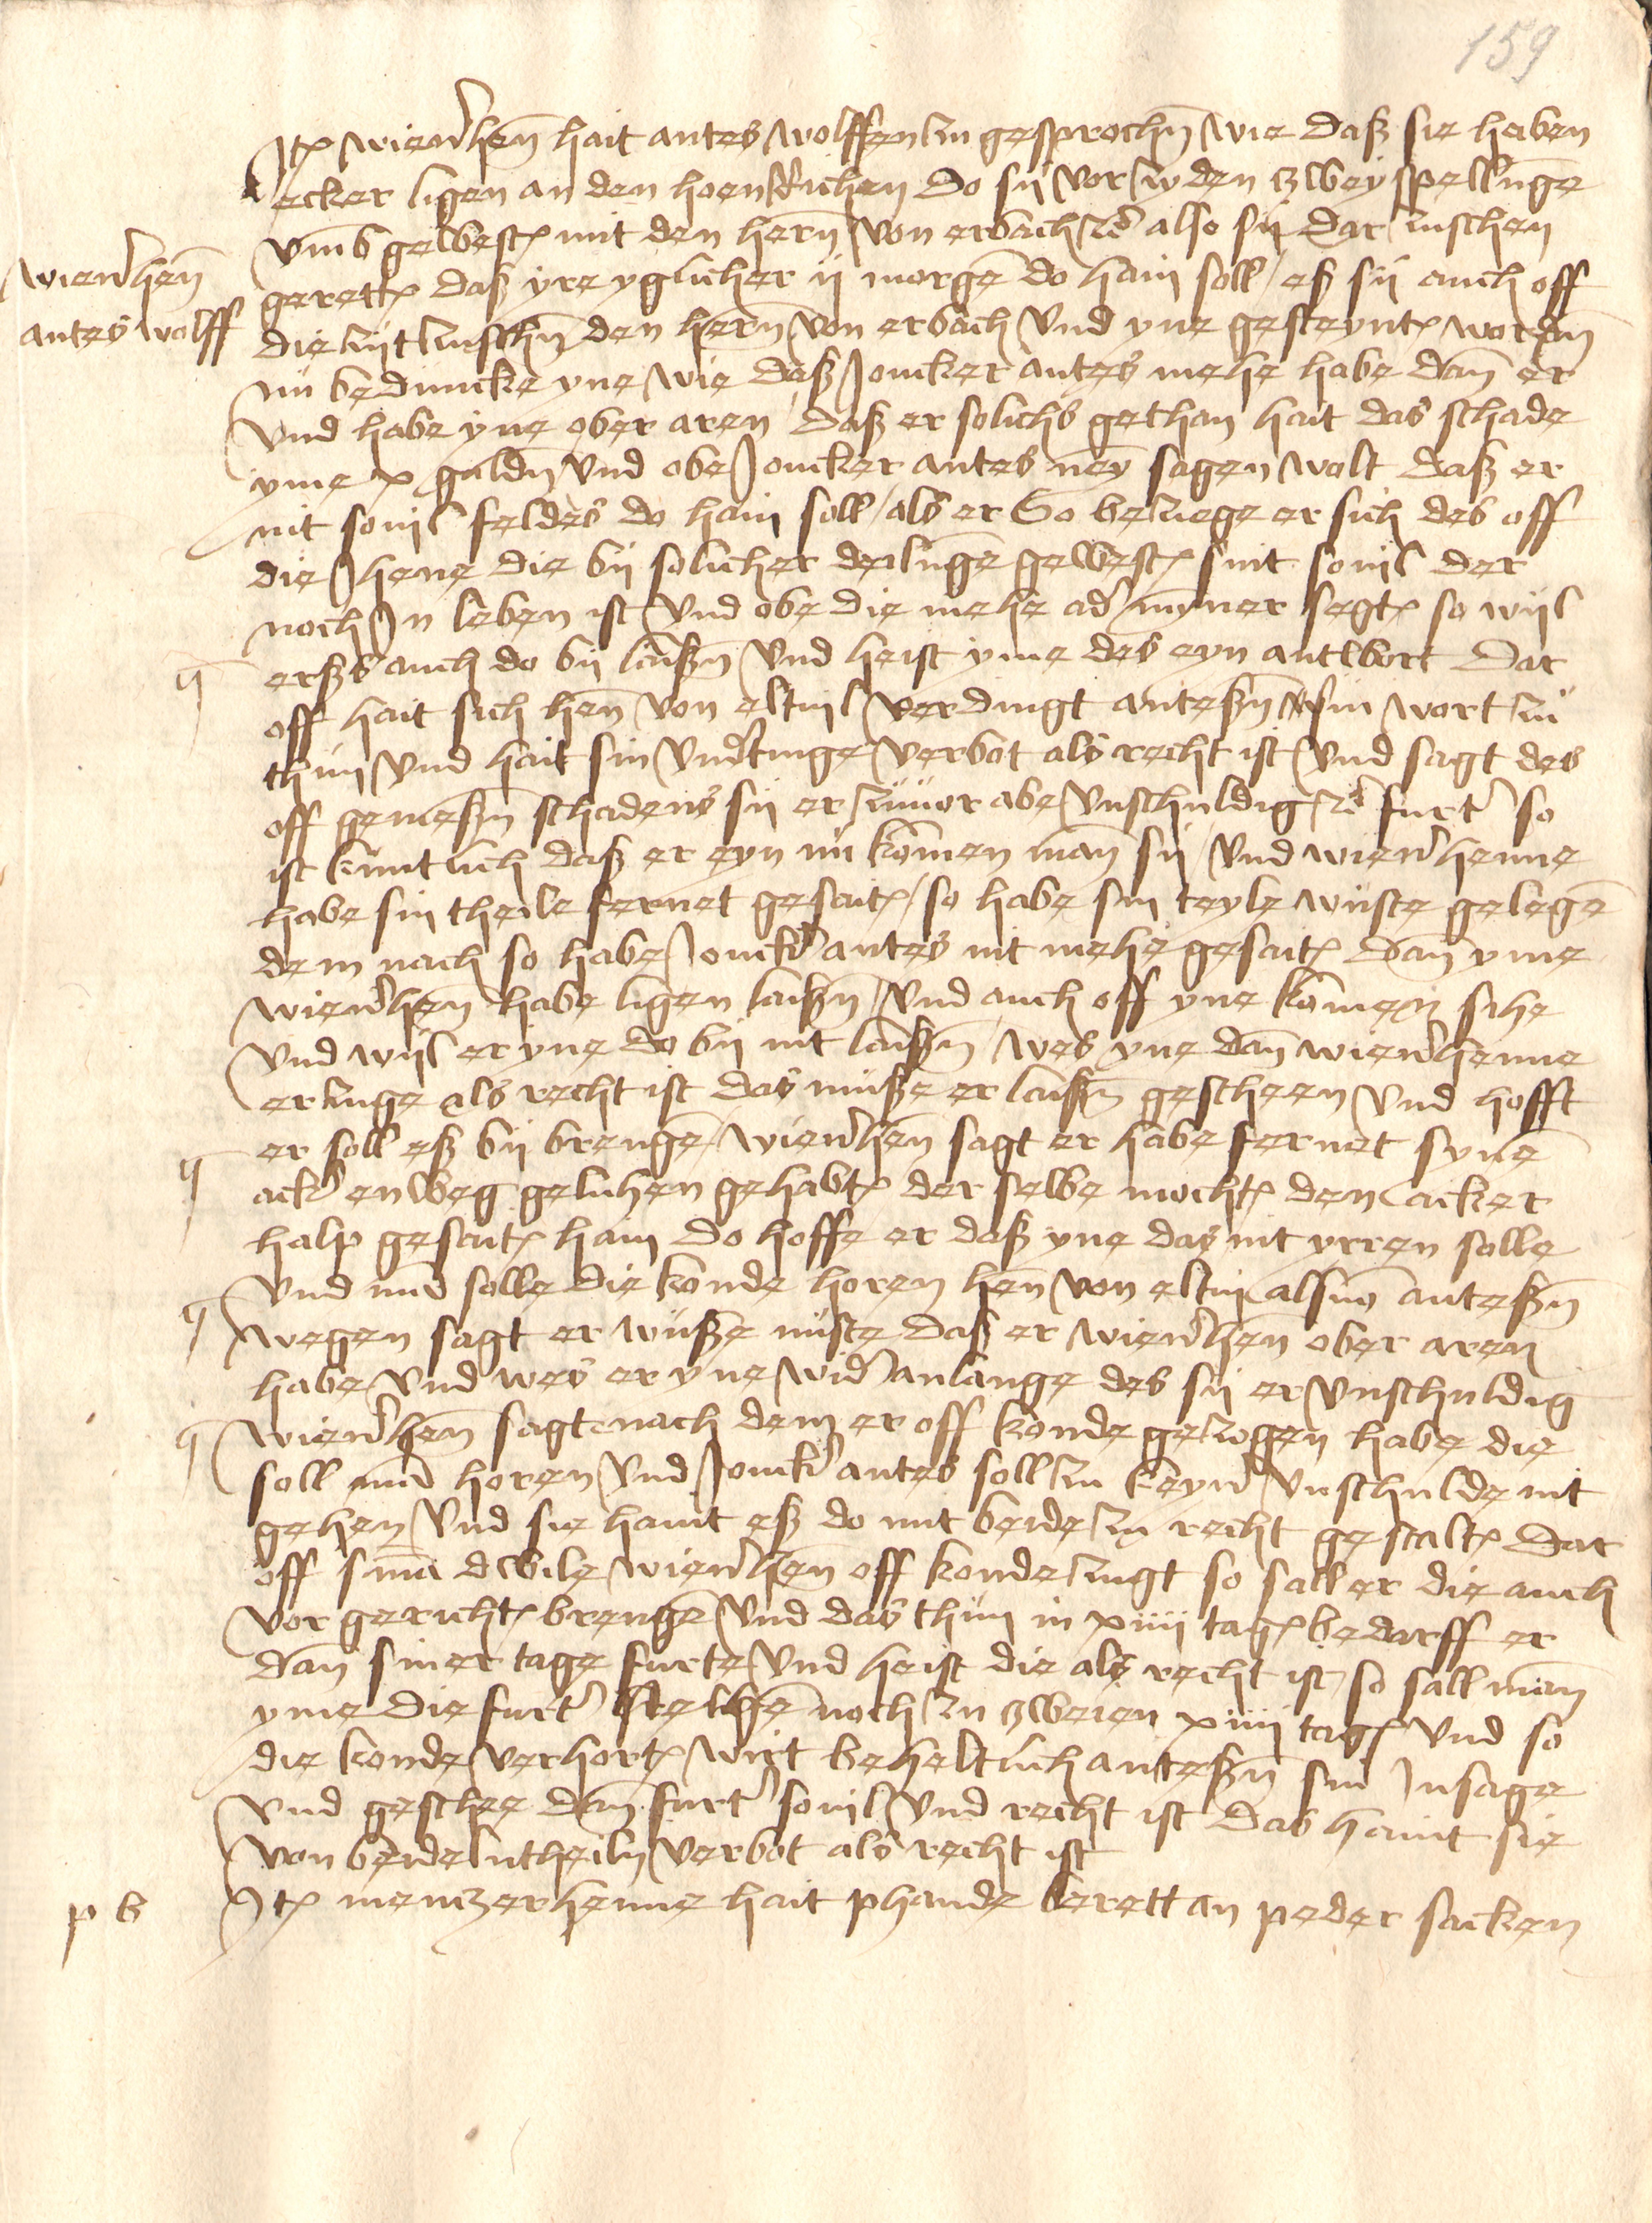 159
Jt(em) wiener hen(n) hait antes wolffen zu gesproch(e)n wie daß sie haben
ecker ligen an den hoenstrichen do sij vorzyden zweyspellunge
umb gewest mit den hern von erbach (et)c(etera) also sij dar zuschen
wiener hen(n)
antes wolff
gerett daß yre yglicher ij morge(n) do hain soll / eß sij auch off
die zijt zusch(e)n den hern von erbach und yne gesteynt word(e)n
nu beduncke yne wie daß Joncker antes mehe habe dan er
und habe yne ober aren / daß er solichs gethan hait das schade
yme x guld(e)n und obe Joncker antes ney sagen wolt daß er
nit so vil feldes do hain soll / als er So beziege er sich des off
die Jhene die bij solicher deilunge gewest sint so vil der
noch Jn leben ist und obe die mehe ad(er) mynner segt(en) so wijl
erßs auch do bij laiß(e)n und heist yme des eyn antwort Dar
off hait sich hen(n) von eltvil verdingt anteß(e)n sin wort zu
thun und hait sin und(er)tinge verbot als recht ist und sagt des
off gemeß(e)n schadens sij er zuvor abe unschuldig (et)c(etera) furt(er) so
ist kuntlich daß er eyn nu komen man sij / und wiener henne
habe sin theile fernet geseit / so habe sin teyle wuste gelege(n)
dem nach so habe Jonck(er) antes nit mehe geseit dan yme
wiener hen(n) habe ligen laiß(e)n und auch off yne komen sihe
und wijl er yne do bij nit laiß(e)n / wes yne dan wiener henne
erzuge als recht ist das muße er laiß(e)n gescheen und hofft
er soll eß bij brenge(n) / wiener hen(n) sagt er habe fernet syne(n)
ack(er) enweg geluhen gehabt der selbe mocht den acker
halp geseit hain do hoffe er daß yne das nit yrren solle
und man solle die konde horen hen(n) von eltvil als von anteß(e)n
wegen sagt er wuße nuste daß er wiener hen(n) ober aren
habe und wes er yne wid(er) anlange des sij er unschuldig
wiener hen(n) sagt nach dem er off konde gezogen habe die
soll man horen und Jonck(er) antes soll zu keyn(er) unschulde nit
gehen und sie haint eß do mit beide zu recht gestalt Dar
off s(e)n(tent)ia dwile wiener hen(n) off konde zugt so sall er die auch
vor gericht brenge(n) und das thun in xiiij tag(en) bedarff er
dan siner tage furte(r) und heist die als recht ist / so sall man
yme die furt(er) stelle(n) noch zu zweien xiiij tag(en) und so
die konde verhort wirt beheltlich anteß(e)n sin Jnsage
und geschee dan furt(er) so vil und recht ist Das haint sie
von beiden theiln verbot als recht ist
p b Jt(em) mentzer henne hait phande berett an peder sacken